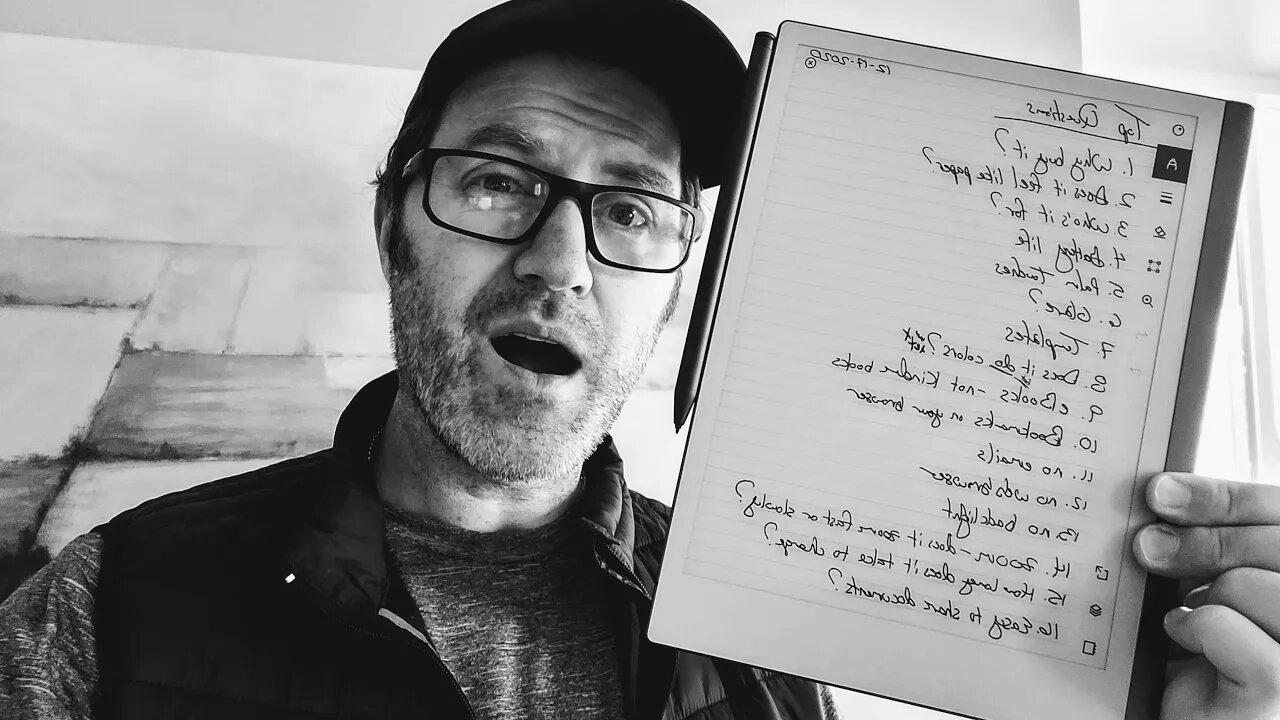 12-17-2020
Top Questions
1. Why buy it?
2. Does it feel like paper?
3. Who's it for?
4. Battery life
5. Palm Touches
6. Glare?
7. Templates
8. Does it do colors?
9. eBooks - not Kindle books
10. Bookmarks on your browser
11. no emails
12. no web browser
13. no backlight
14. zoom - does it zoom fast or slowly?
15. How long does it take to charge?
16. Easy to share documents?
A